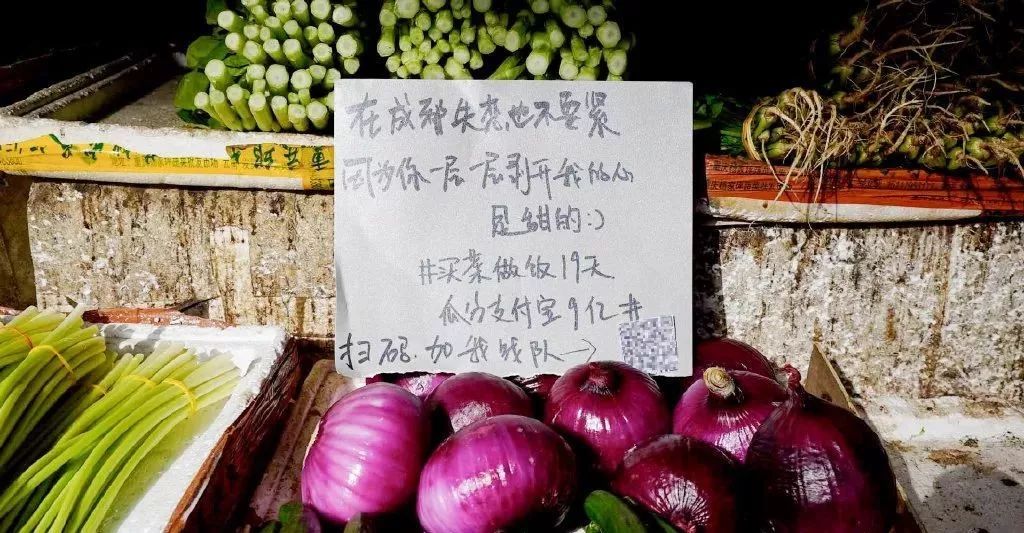 在成都失意也不要紧
因为你一层一层剥开我的心
是甜的:)
#买菜做饭19天
瓜分支付宝9亿#
扫码.加我战队→